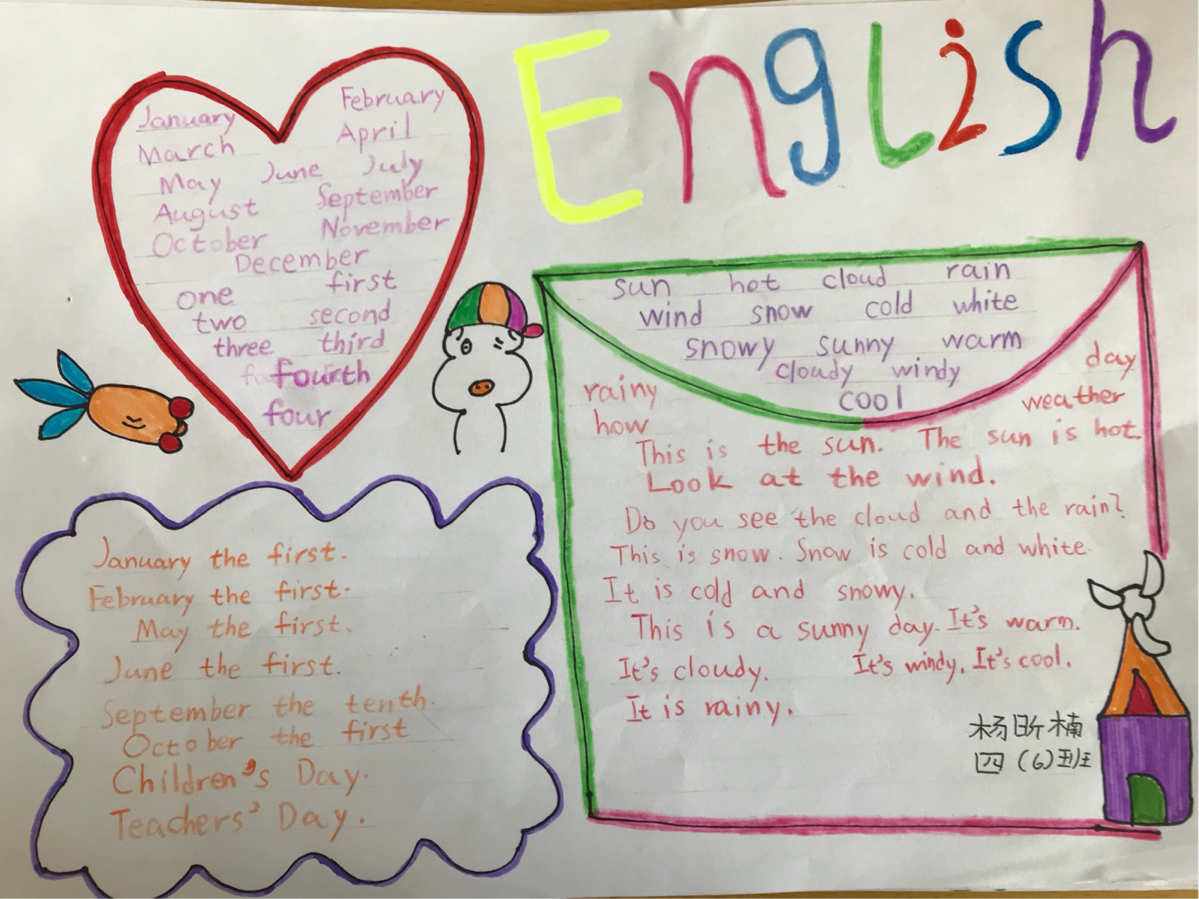 English
January February
March April
May June July
August September
October November
December
one first
two second
three third
fourth
four
sun hot cloud rain
wind snow cold white
snowy sunny warm
cloudy windy
cool
day
rainy weather
how
This is the sun. The sun is hot.
Look at the wind.
Do you see the cloud and the rain?
This is snow. Snow is cold and white.
It is cold and snowy.
This is a sunny day. It's warm.
It's cloudy. It's windy. It's cool.
It is rainy.
January the first.
February the first.
May the first.
June the first.
September the tenth.
October the first
Children's Day.
Teachers' Day.
杨昕楠
四(6)班